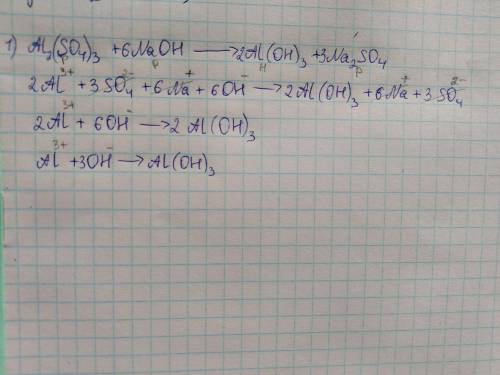 1) Al₂(SO₄)₃ + 6NaOH ⟶ 2Al(OH)₃ + 3Na₂SO₄
р р н р
2Al³⁺ + 3SO₄²⁻ + 6Na⁺ + 6OH⁻ ⟶ 2Al(OH)₃ + 6Na⁺ + 3SO₄²⁻
2Al³⁺ + 6OH⁻ ⟶ 2Al(OH)₃
Al³⁺ + 3OH⁻ ⟶ Al(OH)₃